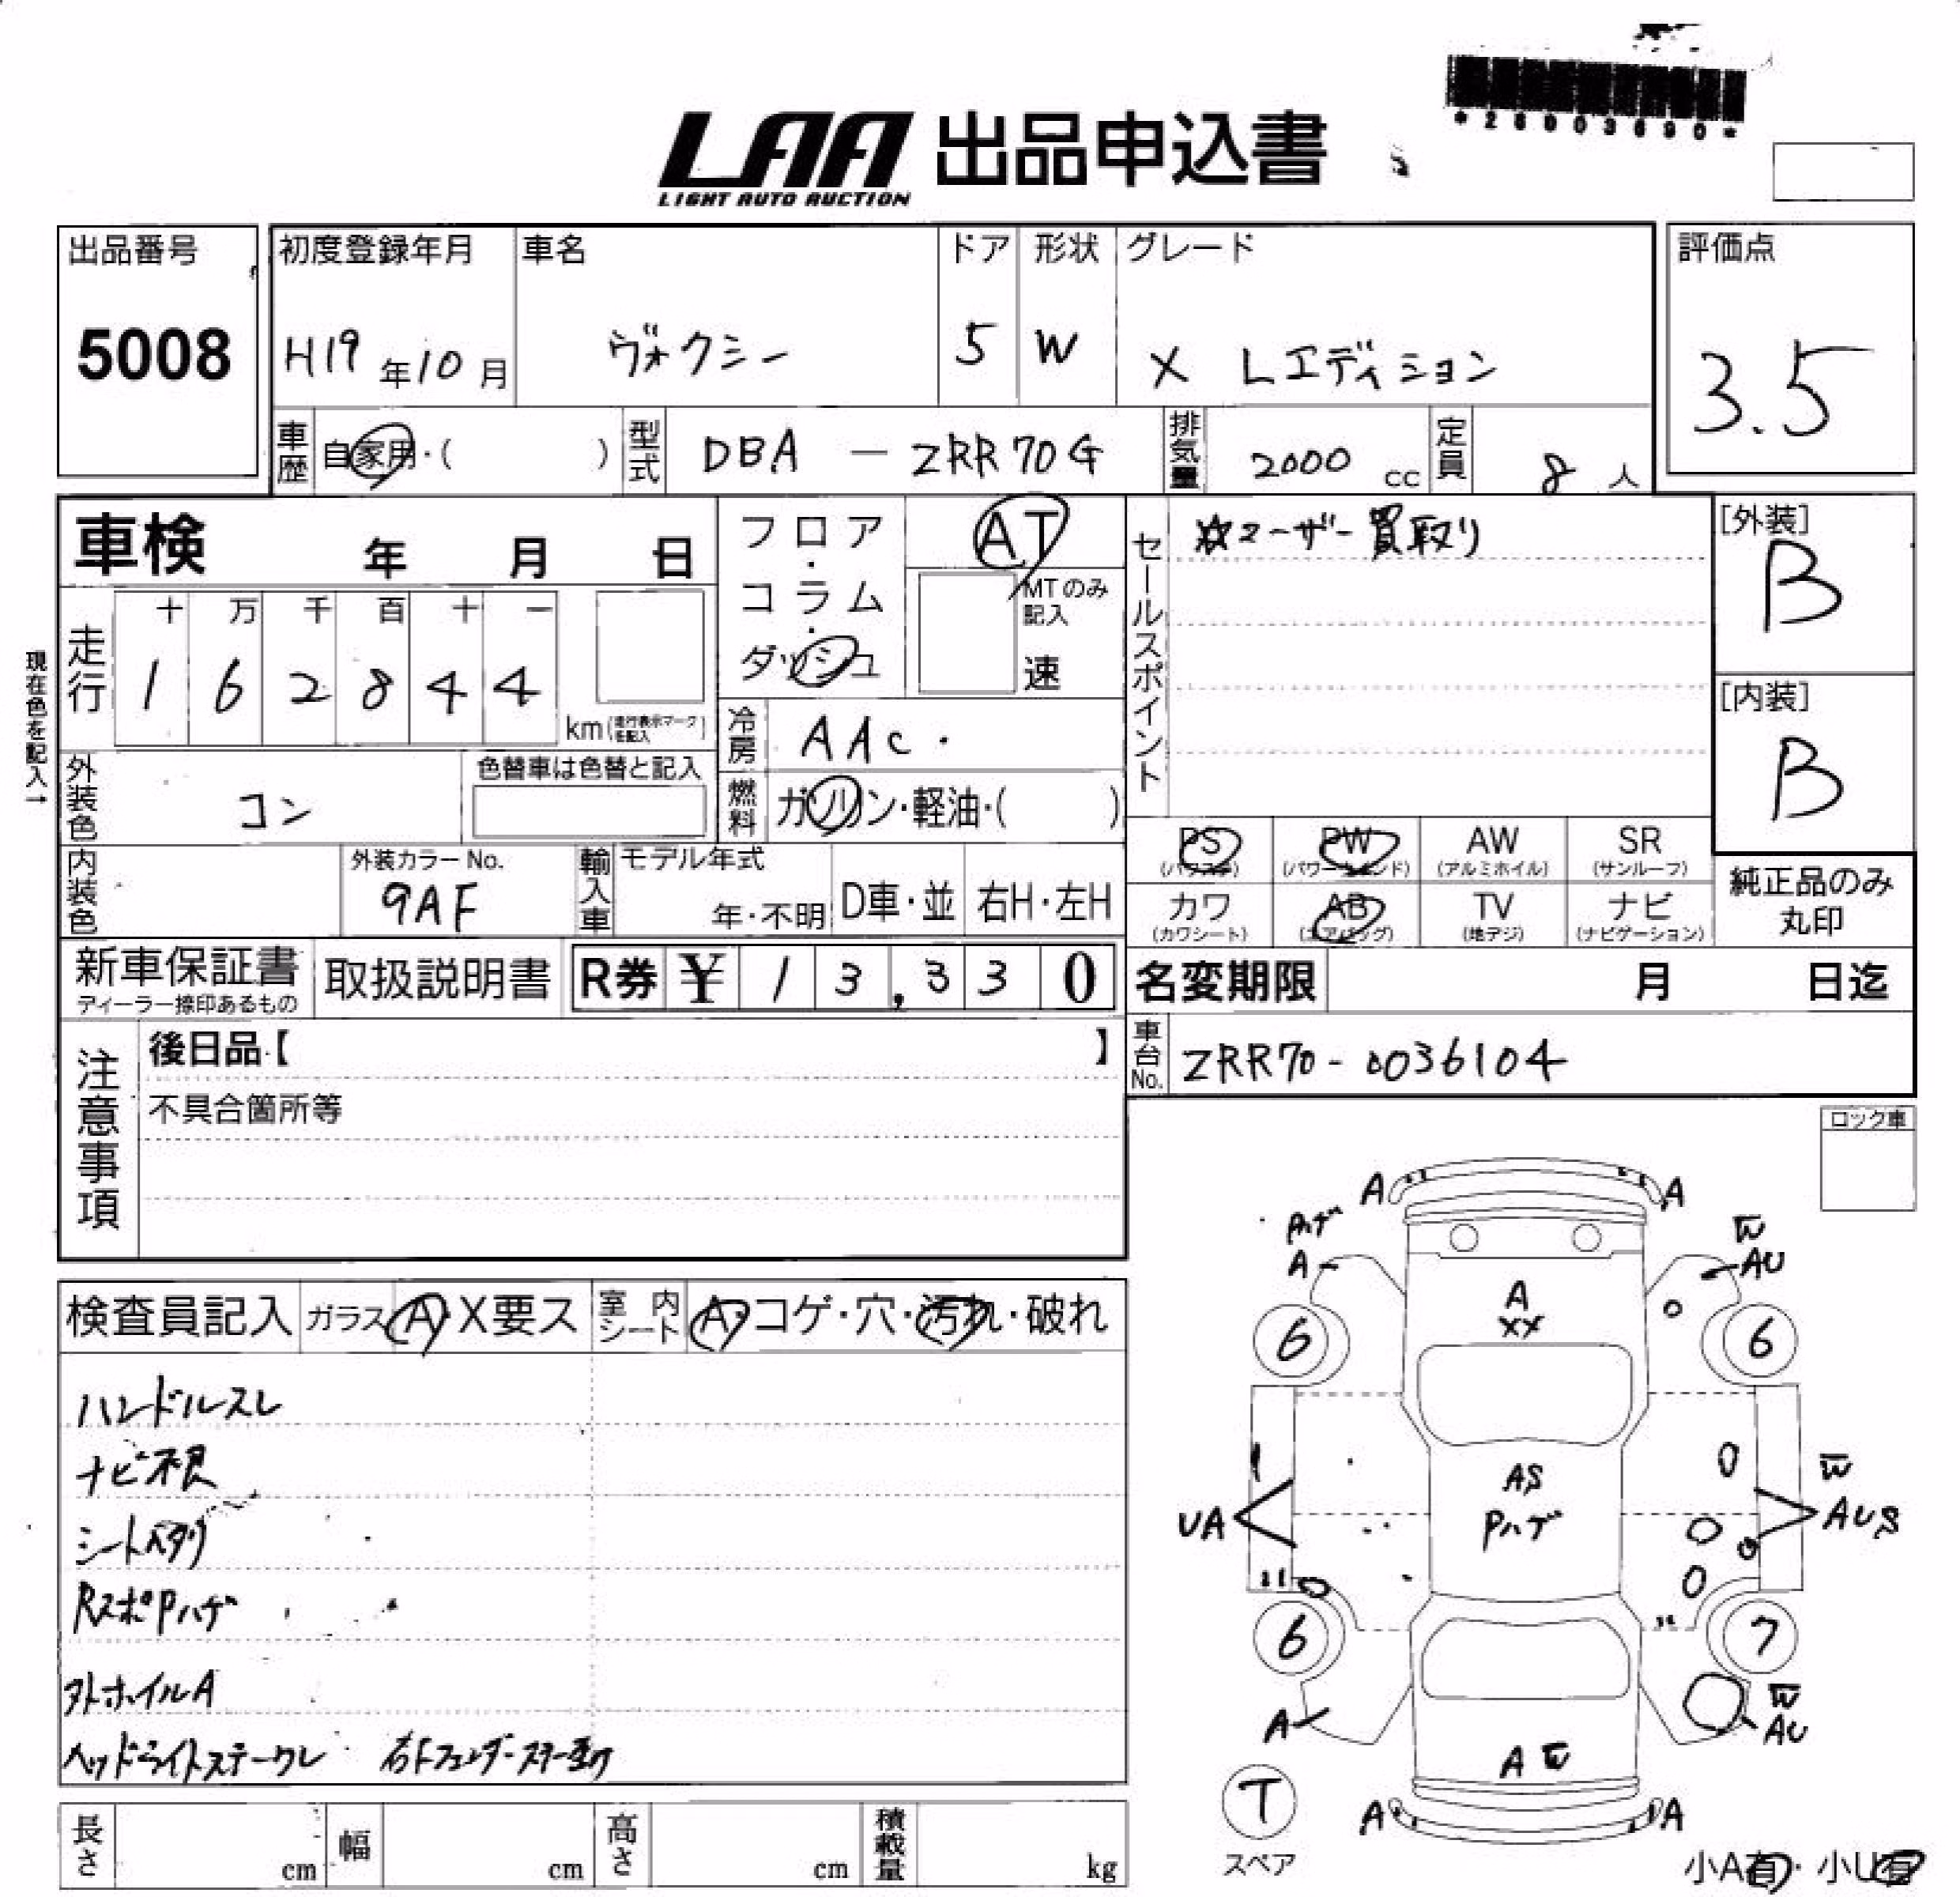 *28003690*
LAA 出品申込書
LIGHT AUTO AUCTION
出品番号
5008
初度登録年月
H19年10月
車名
ヴォクシー
ドア
5
形状
W
グレード
X Lエディション
評価点
3.5
車歴
自家用・( )
型式
DBA - ZRR70G
排気量
2000 cc
定員
8 人
車検 年 月 日
フロア・コラム・ダッシュ
AT
MTのみ記入
速
セールスポイント
☆ユーザー買取り
[外装]
B
[内装]
B
現在色を記入→
走行
十 万 千 百 十 一
1 6 2 8 4 4
km(走行表示マークを記入)
冷房
AAC.
外装色
コン
色替車は色替と記入
燃料
ガソリン・軽油・( )
PS (パワステ)
PW (パワーウインド)
AW (アルミホイル)
SR (サンルーフ)
カワ (カワシート)
AB (エアバッグ)
TV (地デジ)
ナビ (ナビゲーション)
純正品のみ
丸印
内装色
外装カラーNo.
9AF
輸入車
モデル年式
年・不明
D車・並
右H・左H
新車保証書
ディーラー捺印あるもの
取扱説明書
R券 ¥ 13,330
名変期限 月 日迄
車台No.
ZRR70-0036104
注意事項
後日品【 】
不具合箇所等
ロック車
検査員記入
ガラス A・X要ス
室内シート
A・コゲ・穴・汚れ・破れ
ハンドルスレ
ナビ不良
シートヘタリ
RスポPハゲ
外ホイルA
ヘッドライトステークレ
A A
Pハゲ
A
W
AU
A
XX
6 6
AS
Pハゲ
UA
W
AUS
6 7
A
W
AU
A W
A A
T
スペア
小A有・小U有
長さ cm
幅 cm
高さ cm
積載量 kg